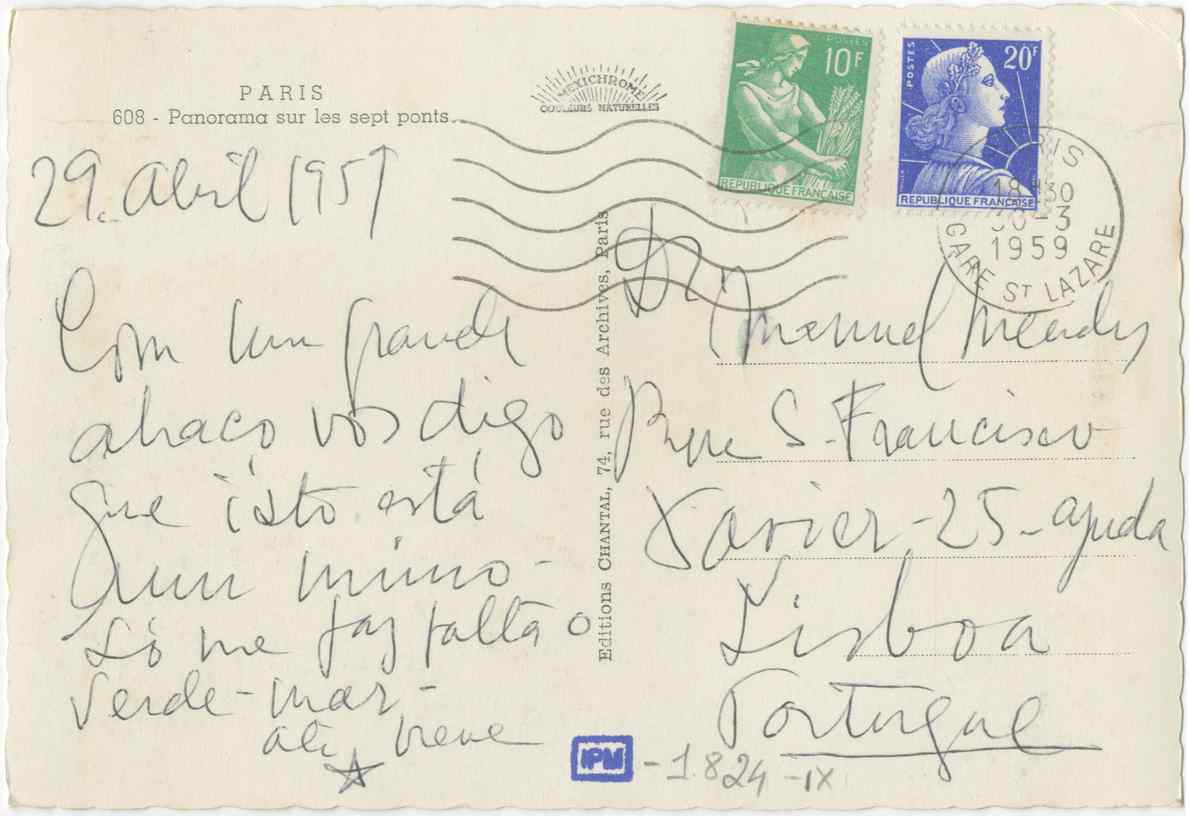 PARIS
608 - Panorama sur les sept ponts
MEXICHROME
COULEURS NATURELLES
POSTES
10F
REPUBLIQUE FRANÇAISE
POSTES
20F
REPUBLIQUE FRANÇAISE
PARIS
18H30
30-3
1959
GARE ST LAZARE
29. Abril 195
Com um grande
abraço vos digo
que isto está
um mimo -
só me faz falta o
verde-mar -
até breve
Editions CHANTAL, 74, rue des Archives, Paris
Manuel Mendes
Rue S. Francisco
Xavier - 25 - Ajuda
Lisboa
Portugal
IPM - 1824 - IX